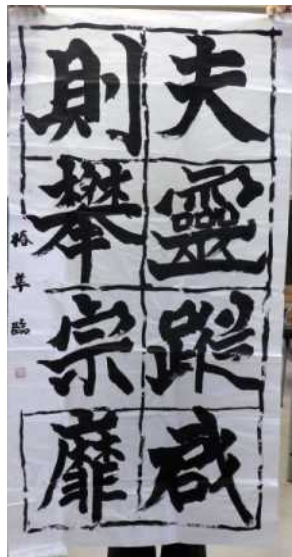 夫靈蹤啟
則攀宗靡
椿華臨